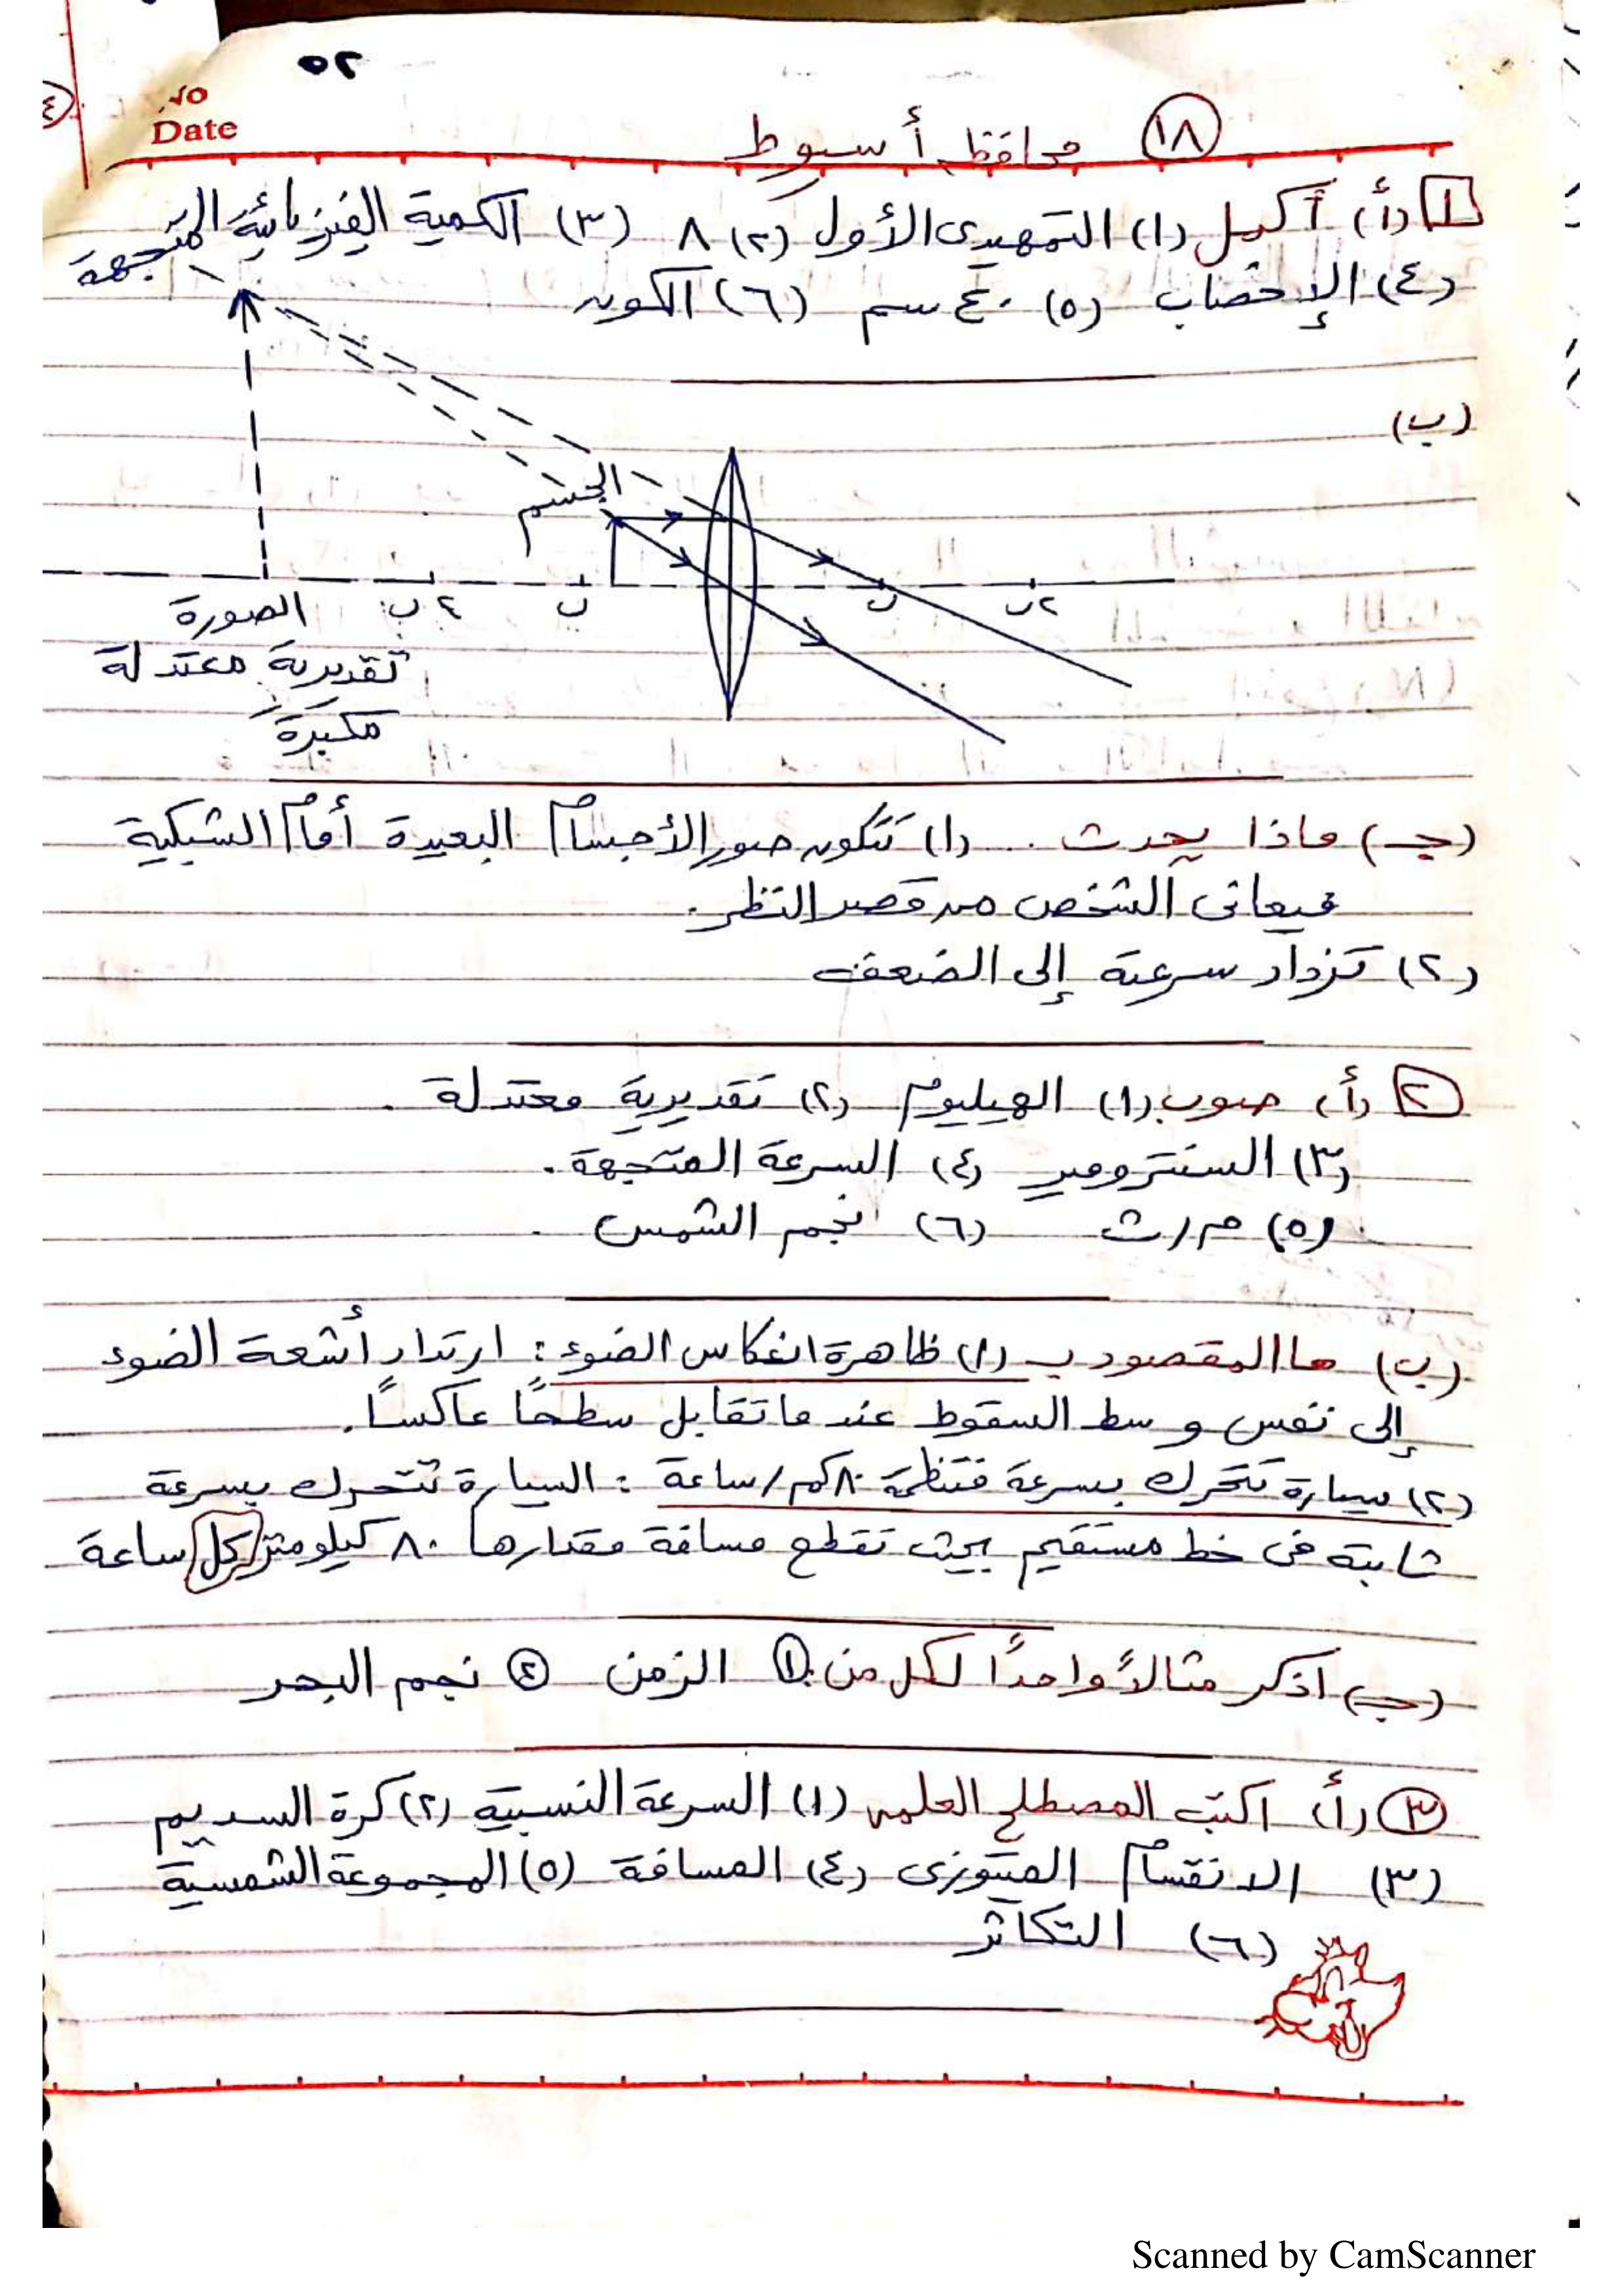 ٥٢
No
Date
١٨ محافظة أسيوط
١ (أ) أكمل (١) التمهيدى الأول (٢) ٨ (٣) الكمية الفيزيائية المتجهة
(٤) الإخصاب (٥) ٤٠ سم (٦) الكون
(ب)
الجسم
٢ ب ب ب ٢ ب
الصورة
تقديرية معتدلة
مكبرة
(جـ) ماذا يحدث ... (١) تتكون صور الأجسام البعيدة أمام الشبكية
فيعانى الشخص من قصر النظر.
(٢) تزداد سرعته إلى الضعف
٢ (أ) صوب (١) الهيليوم (٢) تقديرية معتدلة .
(٣) السنترومير (٤) السرعة المتجهة .
(٥) م/ث (٦) نجم الشمس .
(ب) ما المقصود بـ (١) ظاهرة انعكاس الضوء : ارتداد أشعة الضوء
إلى نفس وسط السقوط عندما تقابل سطحًا عاكسًا.
(٢) سيارة تتحرك بسرعة منتظمة ٨٠ كم/ساعة : السيارة تتحرك بسرعة
ثابتة فى خط مستقيم بحيث تقطع مسافة مقدارها ٨٠ كيلومتر كل ساعة
(جـ) اذكر مثالاً واحدًا لكل من: ١ الزمن ٢ نجم البحر
٣ (أ) اكتب المصطلح العلمى (١) السرعة النسبية (٢) كرة السديم
(٣) الانقسام الميتوزى (٤) المسافة (٥) المجموعة الشمسية
(٦) التكاثر
Scanned by CamScanner